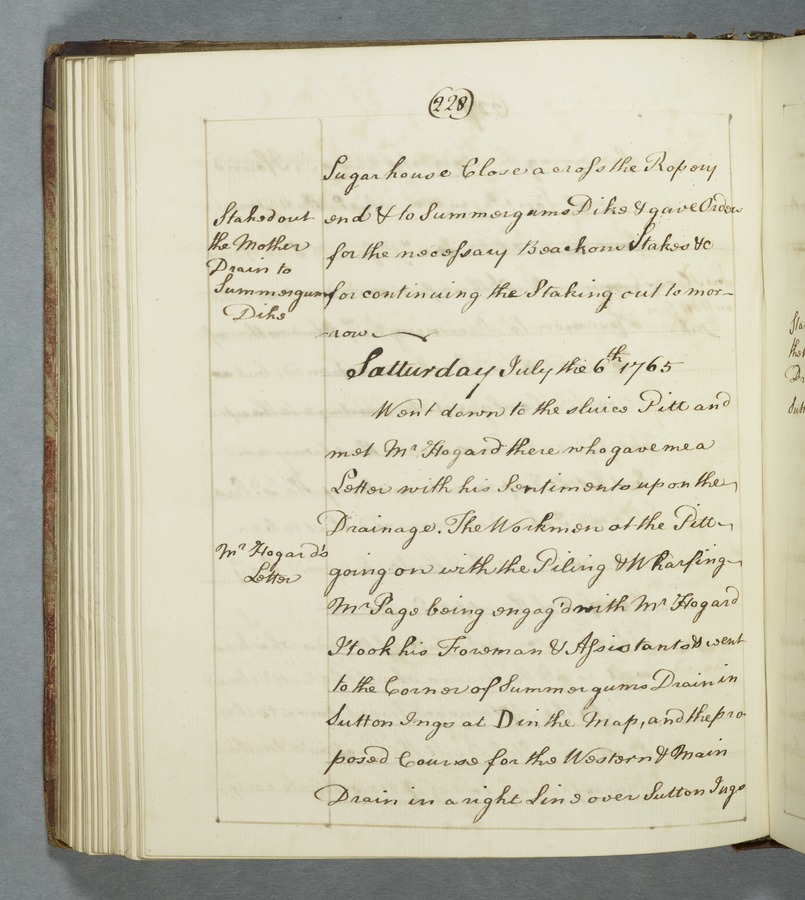 228
Sugarhouse Close across the Ropery
Staked out
the Mother
Drain to
Summergums
Dike
end & to Summergums Dike & gave Orders
for the necessary Beackons Stakes &c
for continuing the Staking out to mor-
row
Satturday July the 6th 1765
Went down to the sluice Pitt and
met Mr Hogard there who gave me a
Letter with his Sentiments upon the
Drainage. The Workmen at the Pitt
Mr Hogard's
Letter
going on with the Piling & Wharfing
Mr Page being engag'd with Mr Hogard
I took his Foreman & Assistants & went
to the Corner of Summergums Drain in
Sutton Ings at D in the Map, and the pro-
posed Course for the Western & Main
Drain in a right Line over Sutton Ings
Sta
the
Dr
Sutt